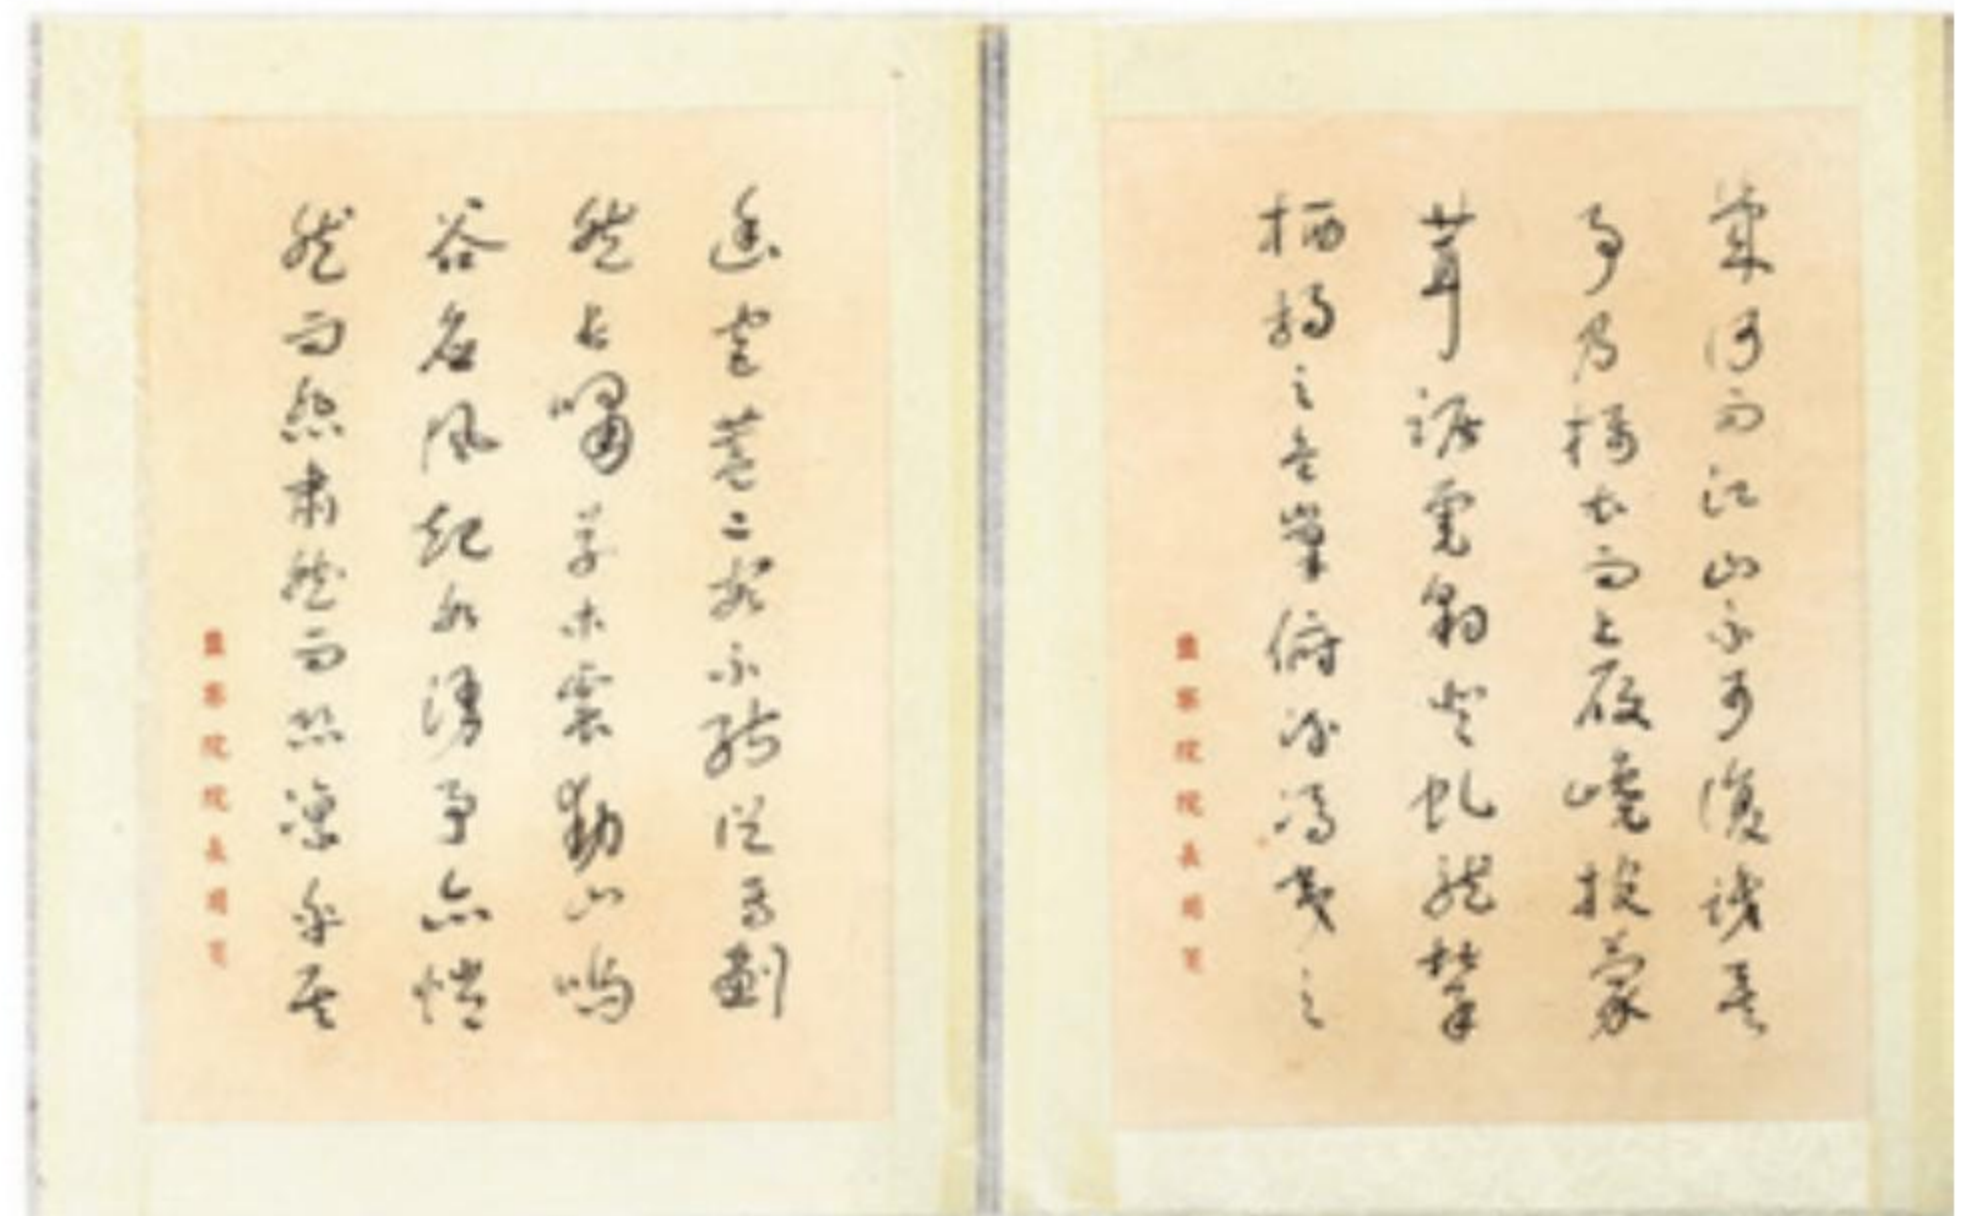 幾何而江山不可復識矣
予乃攝衣而上履巉披蒙
茸踞虎豹登虬龍攀
栖鶻之危巢俯馮夷之
監察院院長用箋
幽宮蓋二客不能從焉劃
然長嘯草木震動山鳴
谷應風起水湧予亦悄
然而悲肅然而恐凜乎其
監察院院長用箋